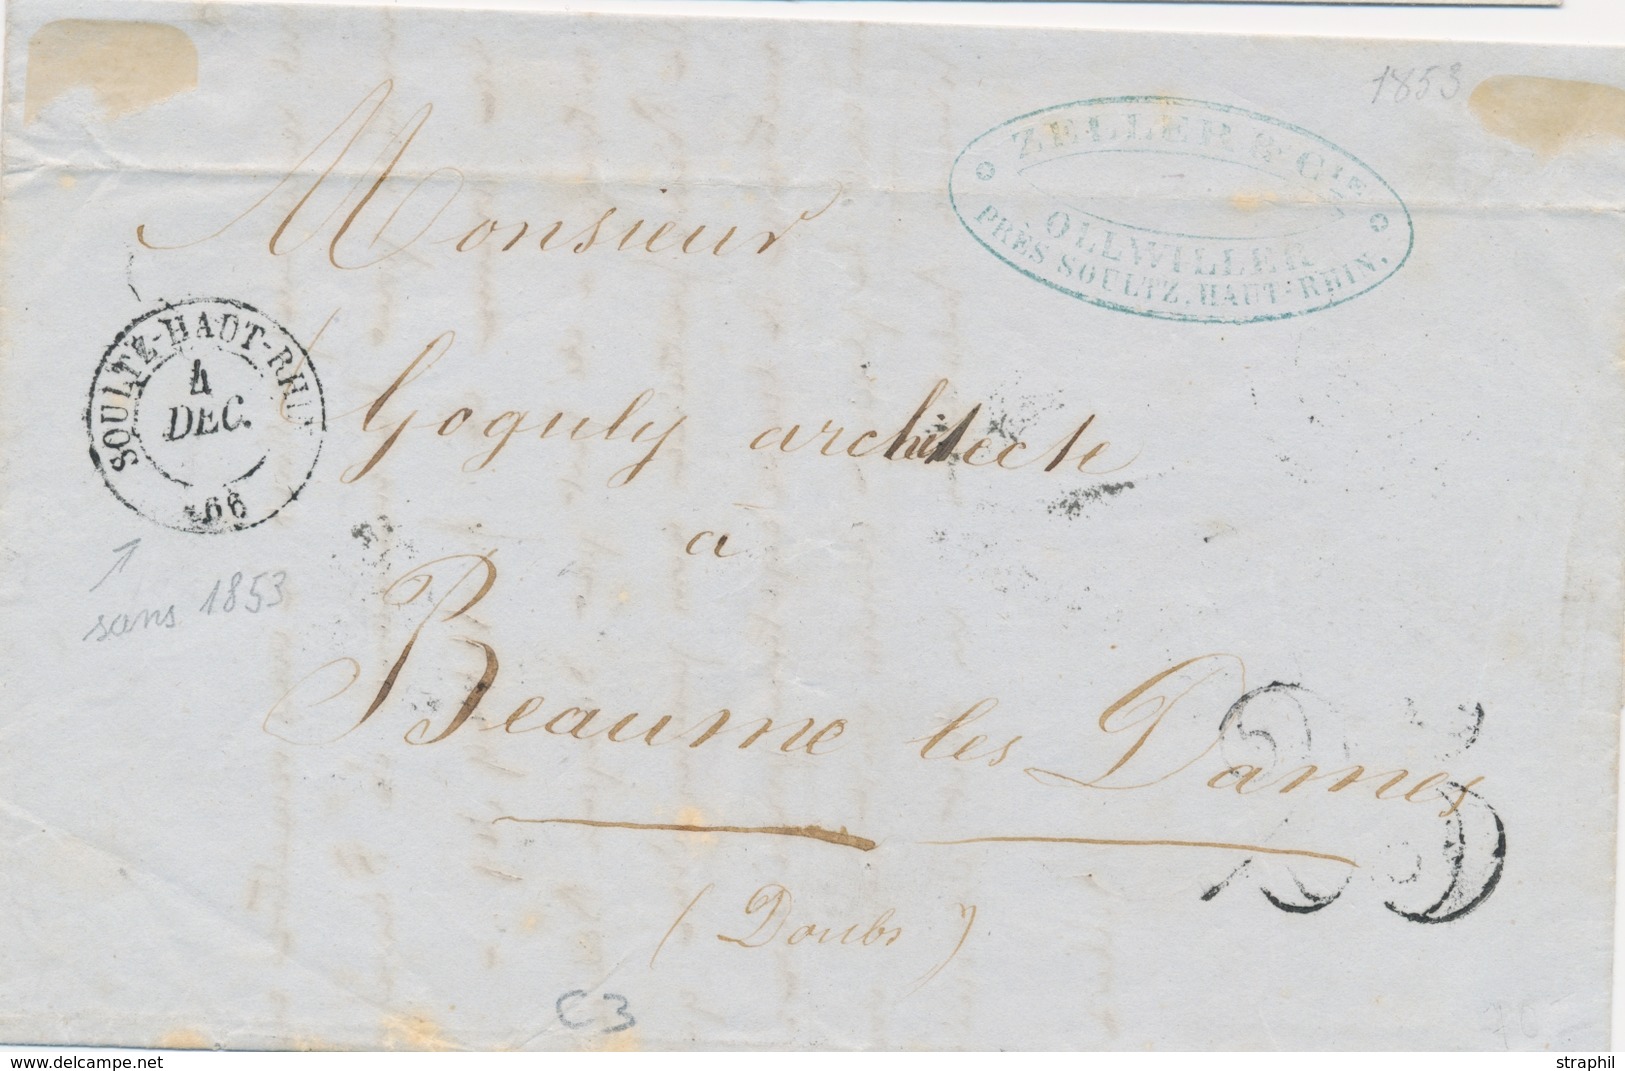 1853
ZELLER & CIE
OLLWILLER
PRÈS SOULTZ, HAUT-RHIN.
Monsieur
SOULTZ-HAUT-RHIN
4
DEC.
(66)
Goguly architecte
à
sans 1853
Beaume les Dames
(Doubs)
C3
70 -
delcampe.net
straphil